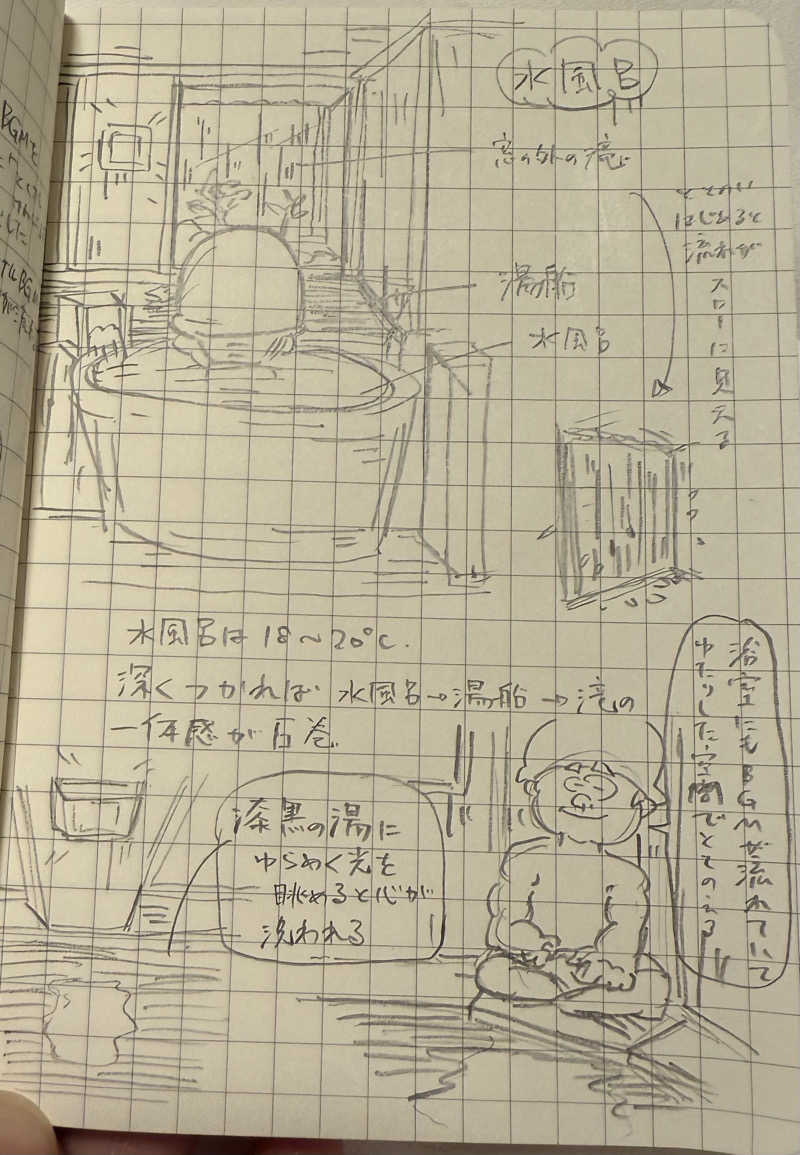 水風呂
窓の外の滝
ととのい
はじめると
流れが
スローに見える
湯船
水風呂
水風呂は18~20℃.
深くつかれば 水風呂→湯船→滝の
一体感が圧巻
浴室にもBGMが流れていて
ゆったりした空間でととのえる
漆黒の湯に
ゆらめく光を
眺めると心が
洗われる
BGMを
した